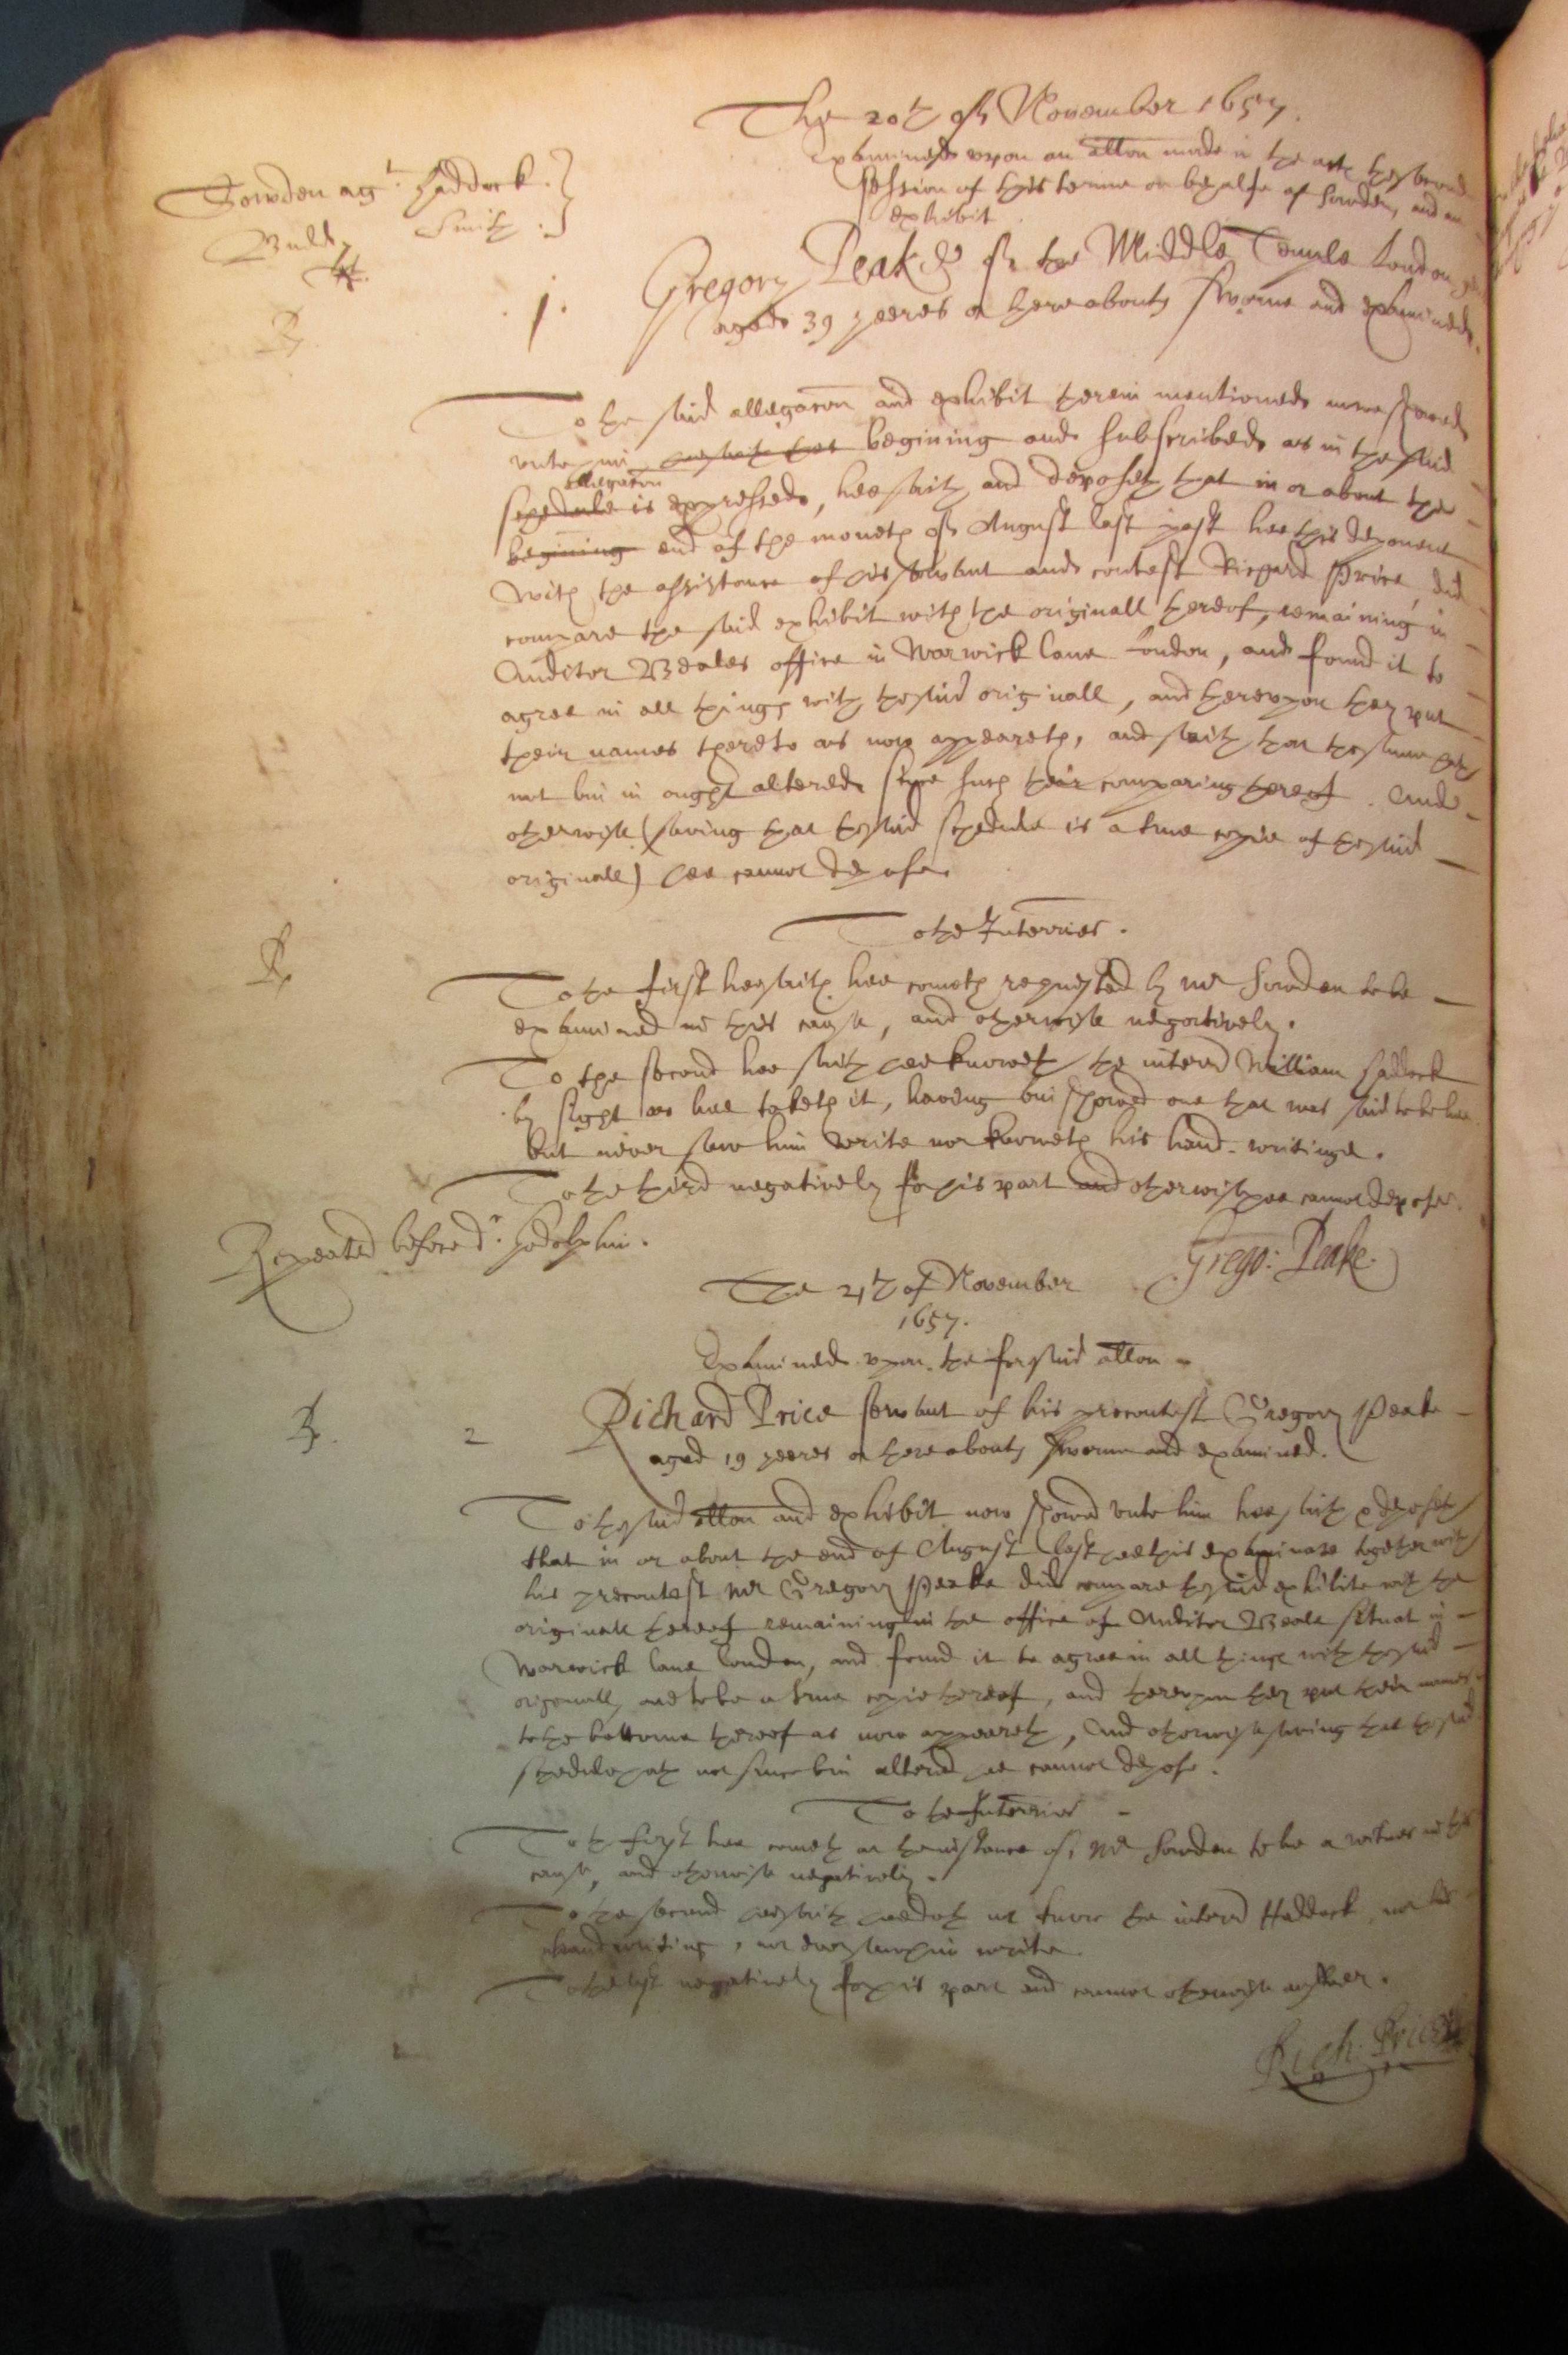 The 20th of November 1657.
Examined upon an allon made in the acts the second
session of this terme on behalfe of Sowden, and an
exhibit
Sowden agt. Haddock.
Smith.
Budd
1.
Gregory Peake of the Middle Temple London
aged 39 yeeres or thereabouts sworne and examined.
To the said allegacon and exhibit therein mentioned now showed
unto him, begining and subscribed as in the said
allegacon
schedule is expressed, hee saith and deposeth that in or about the
begining end of the moneth of August last past hee this deponent
with the assistance of his servant and contest Richard Price, did
compare the said exhibit with the originall thereof, remaining in
Auditor Beales office in Warwick lane London, and found it to
agree in all things with the said originall, and thereupon they put
their names thereto as now appeareth, and saith that the same hath
not bin in ought altered since such their comparing thereof. And
otherwise (saving that the said schedule is a true copie of the said
originall) hee cannot depose.
To the Interries.
To the first hee saith hee cometh requested by mr Sowden to be
examined in this cause, and otherwise negatively.
To the second hee saith hee knoweth the interrd William Haddock
by sight as hee taketh it, having bin showed one that was said to be hee
but never saw him write nor knoweth his hand-writinge.
To the third negatively for his part and otherwise hee cannot depose.
Repeated before dr. Godolphin.
Grego: Peake.
The 21th of November
1657.
Examined upon the foresaid allon
2
Richard Price servant of his precontest Gregory Peake
aged 19 yeeres or thereabouts sworne and examined.
To the said allon and exhibit now showed unto him hee saith & deposeth
that in or about the end of August last hee this examinate together with
his precontest mr Gregory Peake did compare the said exhibite with the
originall thereof remaining in the office of Auditor Beale situat in
Warwick lane London, and found it to agree in all things with the said
originall, and to be a true copie thereof, and thereupon they put their names
to the bottome thereof as now appeareth, And otherwise saving that the said
schedule hath not since bin altered hee cannot depose.
To the Interries
To the first hee cometh at the instance of mr Sowden to be a witnes in this
cause, and otherwise negatively.
To the second hee saith hee doth not know the interrd Haddock, nor his
handwriting, nor ever saw him write
To the last negatively for his part and cannot otherwise answer.
Rich: Price